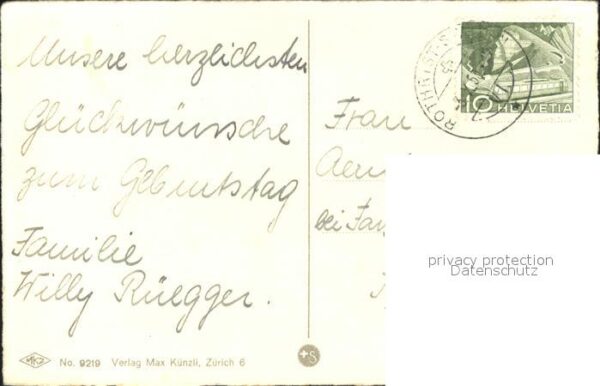 Unsere herzlichsten
Glückwünsche
zum Geburtstag
Familie
Willy Rüegger.
Frau
bei Fam
ROTHRIST
10 HELVETIA
privacy protection
Datenschutz
MKZ No. 9219 Verlag Max Künzli, Zürich 6
+S